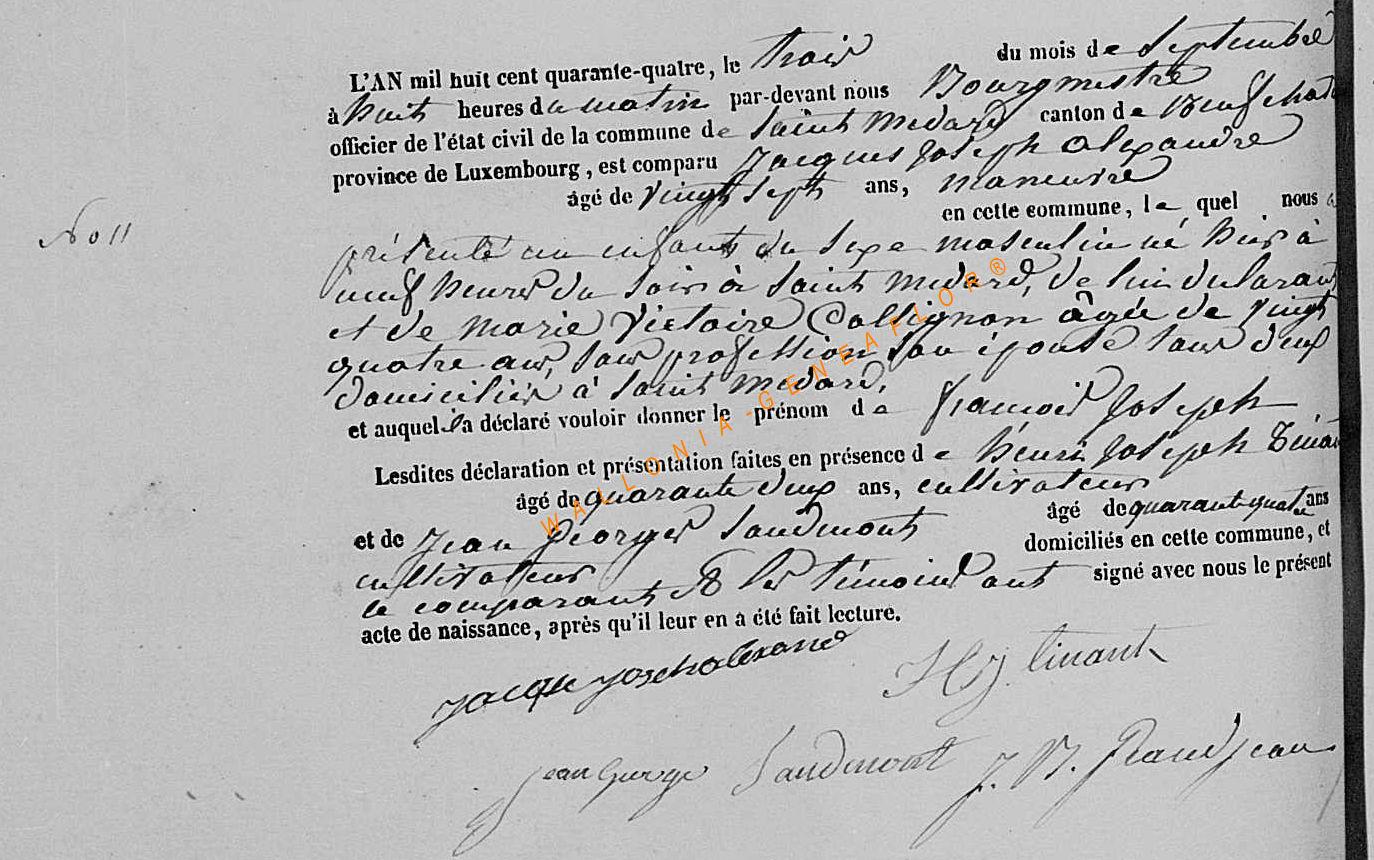 L'AN mil huit cent quarante-quatre, le trois du mois de Septembre
à huit heures du matin par-devant nous Bourgmestre
officier de l'état civil de la commune de Saint Medard canton de Neufchate
province de Luxembourg, est comparu Jacques Joseph Alexandre
âgé de vingt sept ans, maneuvre
en cette commune, le quel nous a
N° 11
présenté un enfant du sexe masculin né hier à
neuf heures du soir à Saint Medard, de lui declarant
et de Marie Victoire Collignon âgée de vingt
quatre ans, sans profession son épouse tous deux
domiciliés à Saint Medard,
et auquel il a déclaré vouloir donner le prénom de françois Joseph
Lesdites déclaration et présentation faites en présence de henri Joseph Tinant
âgé de quarante deux ans, cultivateur
et de Jean Georges Saudmont âgé de quarante quatre ans
cultivateur domiciliés en cette commune, et
le comparant & les témoins ont signé avec nous le présent
acte de naissance, après qu'il leur en a été fait lecture.
Jacque Joseph alexand
H J tinant
jean George Saudmont J. N. Grandjean
WALLONIA-GENEAFLOR®